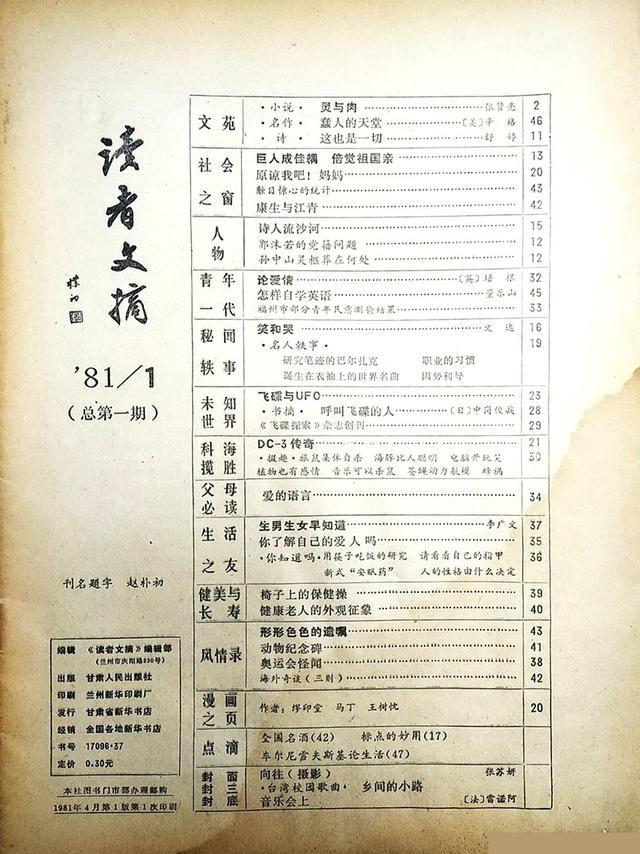 读者文摘
朴初
'81/1
(总第一期)
刊名题字 赵朴初
编辑 《读者文摘》编辑部
(兰州市庆阳路230号)
出版 甘肃人民出版社
印刷 兰州新华印刷厂
发行 甘肃省新华书店
经销 全国各地新华书店
书号 17096·37
定价 0.30元
本社图书门市部办理邮购
1981年4月第1版第1次印刷
文苑
·小说· 灵与肉 张贤亮 2
·名作· 蠢人的天堂 〔美〕辛格 46
·诗· 这也是一切 舒婷 11
社会之窗
巨人成佳耦 倍觉祖国亲 13
原谅我吧!妈妈 20
触目惊心的统计 43
康生与江青 42
人物
诗人流沙河 15
郭沫若的党籍问题 12
孙中山灵柩葬在何处 12
青年一代
论爱情 〔英〕培根 32
怎样自学英语 董乐山 45
福州市部分青年民意测验结果 33
秘闻轶事
笑和哭 文达 16
·名人轶事· 19
研究笔迹的巴尔扎克 职业的习惯
诞生在衣袖上的世界名曲 因势利导
未知世界
飞碟与UFO 23
·书摘· 呼叫飞碟的人 〔日〕中岗俊哉 28
《飞碟探索》杂志创刊 29
科海揽胜
DC-3传奇 21
·掇趣·旅鼠集体自杀 海豚比人聪明 电脑开玩笑 30
植物也有感情 音乐可以杀鼠 苍蝇动力航模 蜂祸
父母必读
爱的语言 34
生活之友
生男生女早知道 李广文 37
你了解自己的爱人吗 35
·你知道吗·用筷子吃饭的研究 请看看自己的指甲 36
新式“安眠药” 人的性格由什么决定
健美与长寿
椅子上的保健操 39
健康老人的外观征象 40
风情录
形形色色的遗嘱 43
动物纪念碑 41
奥运会怪闻 38
海外奇谈(三则) 42
漫画之页
作者:缪印堂 马丁 王树忱 20
点滴
全国名酒(42) 标点的妙用(17)
车尔尼雪夫斯基论生活(47)
封面 向往(摄影) 张苏妍
封三 ·台湾校园歌曲· 乡间的小路
封底 音乐会上 〔法〕雷诺阿